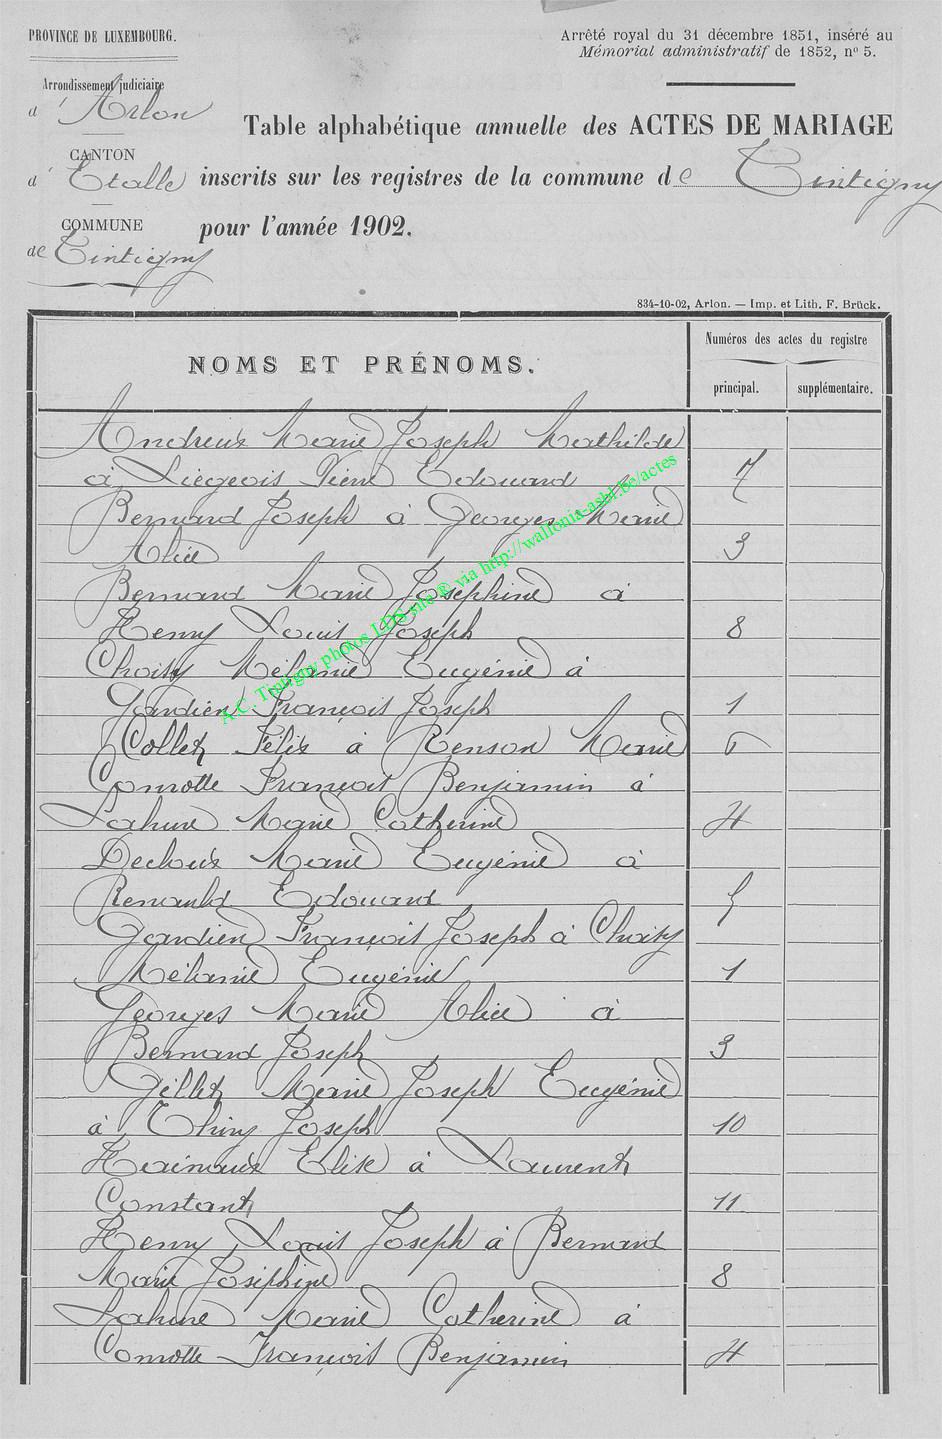 PROVINCE DE LUXEMBOURG.
Arrondissement judiciaire
d'Arlon
CANTON
d'Etalle
COMMUNE
de Tintigny
Arrêté royal du 31 décembre 1851, inséré au
Mémorial administratif de 1852, nº 5.
Table alphabétique annuelle des ACTES DE MARIAGE
inscrits sur les registres de la commune de Tintigny
pour l'année 1902.
834-10-02, Arlon. — Imp. et Lith. F. Brück.
NOMS ET PRÉNOMS.
Numéros des actes du registre
principal. supplémentaire.
Andreux Marie Joseph Mathilde
à Liégeois Pierre Edouard 7
Bernard Joseph à Georges Marie
Alice 3
Bernard Marie Joséphine à
Henry Louis Joseph 8
Choisy Mélanie Eugénie à
Jardien François Joseph 1
Collet Félix à Renson Marie 6
Conrotte François Benjamin à
Lahure Marie Catherine 4
Decloux Marie Eugénie à
Renauld Edouard 5
Jardien François Joseph à Choisy
Mélanie Eugénie 1
Georges Marie Alice à
Bernard Joseph 3
Gillet Marie Joseph Eugénie
à Thiry Joseph 10
Hainaux Elise à Laurent
Constant 11
Henry Louis Joseph à Bernard
Marie Joséphine 8
Lahure Marie Catherine à
Conrotte François Benjamin 4
A.C. Tintigny photos LDS site © via http://wallonia-asbl.be/actes